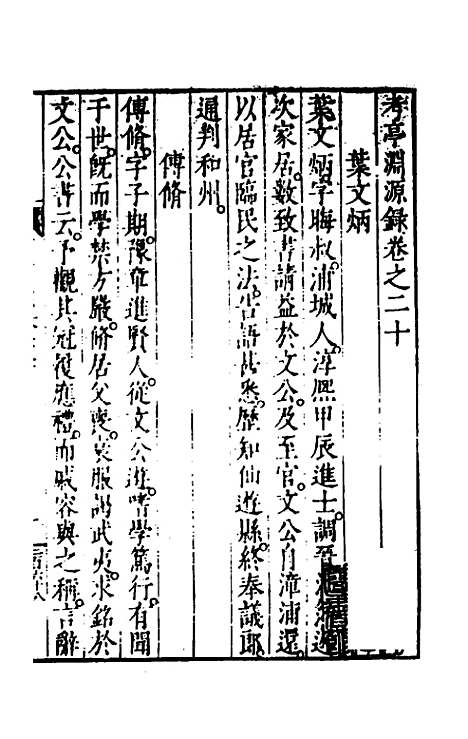 考亭淵源録卷之二十
葉文炳
葉文炳。字晦叔。浦城人。淳熙甲辰進士。調
次家居。數致書請益於文公。及至官。文公自漳浦還。
以居官臨民之法。告語甚悉。歷知仙遊縣。終奉議郎。
通判和州。
傅脩
傅脩。字子期。豫章進賢人。從文公遊。嗜學篤行。有聞
于世。旣而學禁方嚴。脩居父喪。衰服謁武夷。求銘於
文公。公書云。予觀其冠屨應禮。而戚容與之稱。言辭